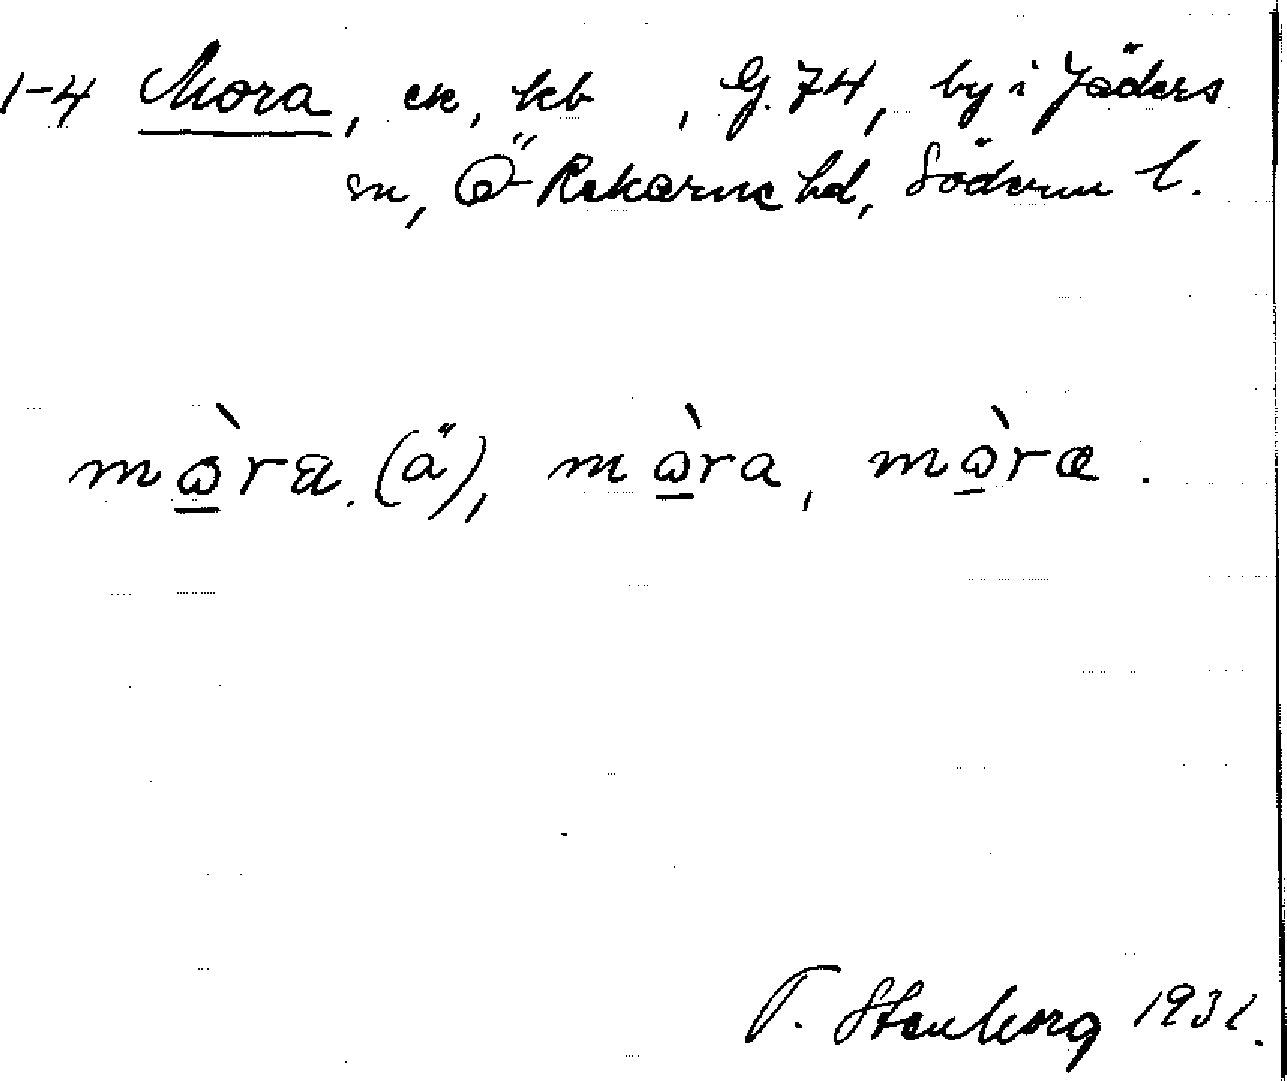 1-4 Mora, ek, kb , G. 74, by i Jäders
sn, Ö Rekarne hd, Söderm l.
mɷ̀ra. (ä), mɷ̀ra, mɷ̀ræ.
T. Stenborg 1931.